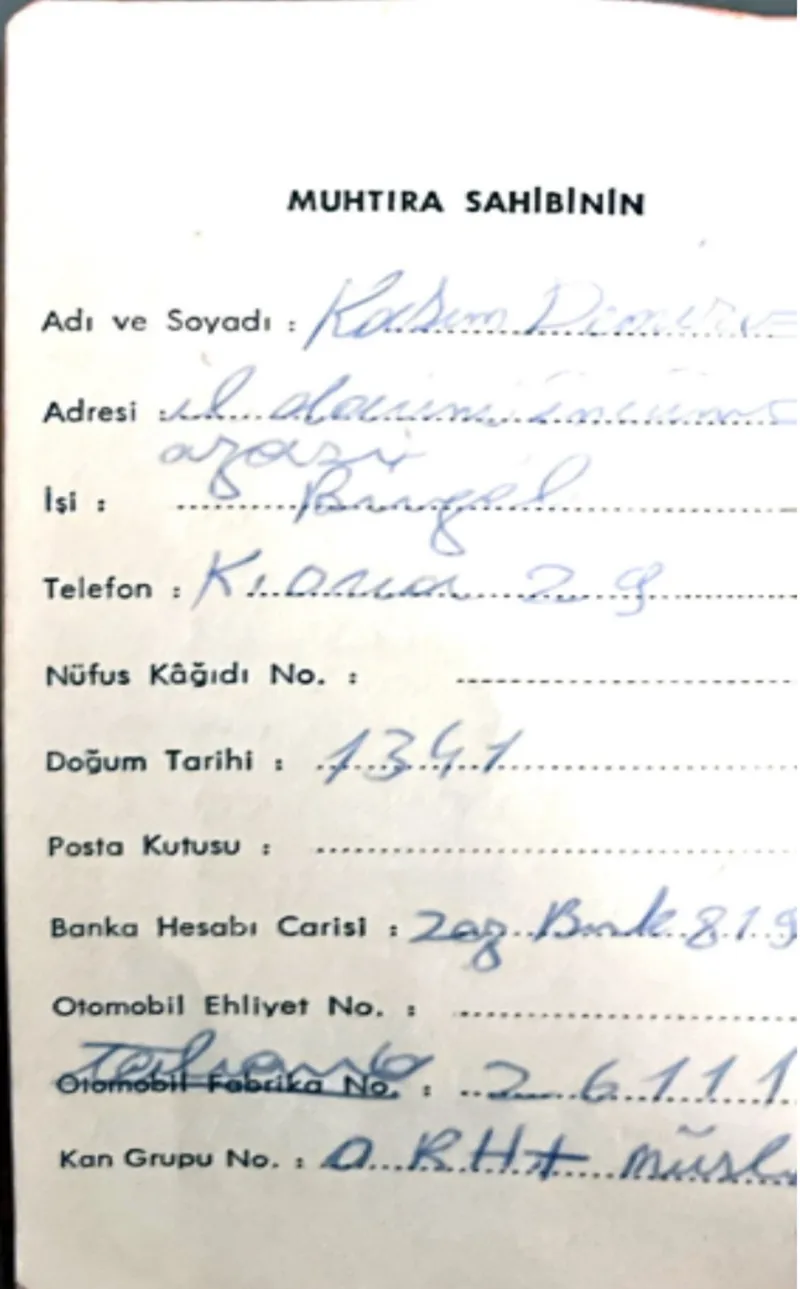 MUHTIRA SAHİBİNİN
Adı ve Soyadı : Kasım
Adresi : il daimi
azası
İşi : Bingöl
Telefon : 29
Nüfus Kâğıdı No. :
Doğum Tarihi : 1341
Posta Kutusu :
Banka Hesabı Carisi : Bnk 819
Otomobil Ehliyet No. :
Otomobil Fabrika No. : 26111
Kan Grupu No. : O RH+